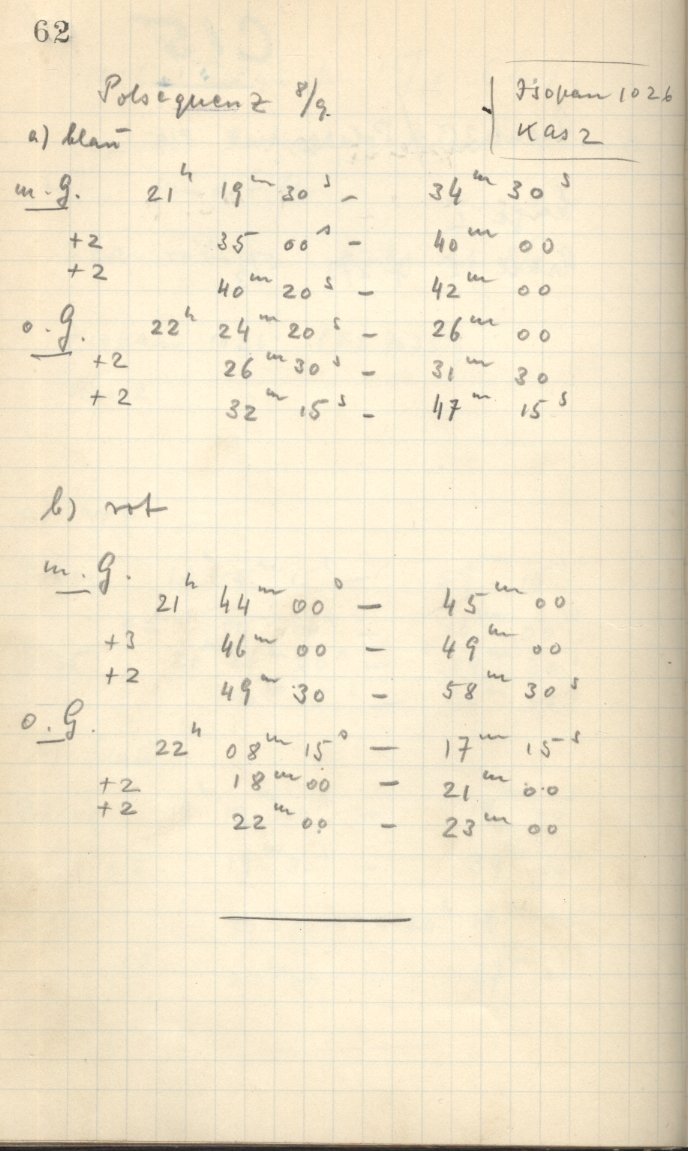 62
Polsequenz 8/9.
Isopan 1026
Kas 2
a) blau
m. G. 21h 19m 30s – 34m 30s
+2 35 00s – 40m 00
+2 40m 20s – 42m 00
o. G. 22h 24m 20s – 26m 00
+2 26m 30s – 31m 30
+2 32m 15s – 47m 15s
b) rot
m. G.
21h 44m 00s – 45m 00
+3 46m 00 – 49m 00
+2 49m 30 – 58m 30s
o. G.
22h 08m 15s – 17m 15s
+2 18m 00 – 21m 00
+2 22m 00 – 23m 00